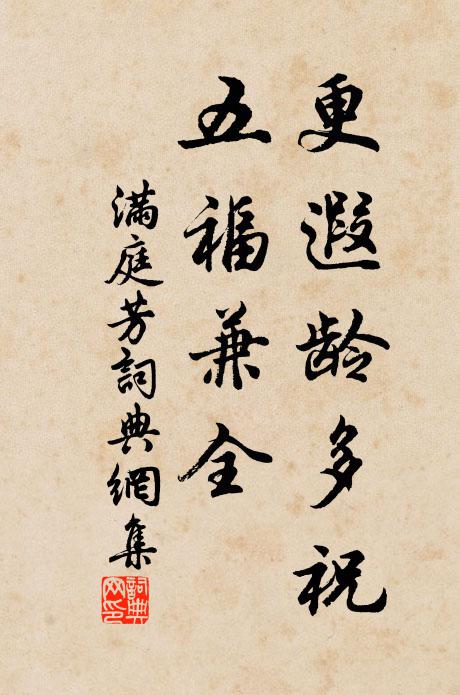 更遐龄多祝
五福兼全
满庭芳詞典網集
詞典网印